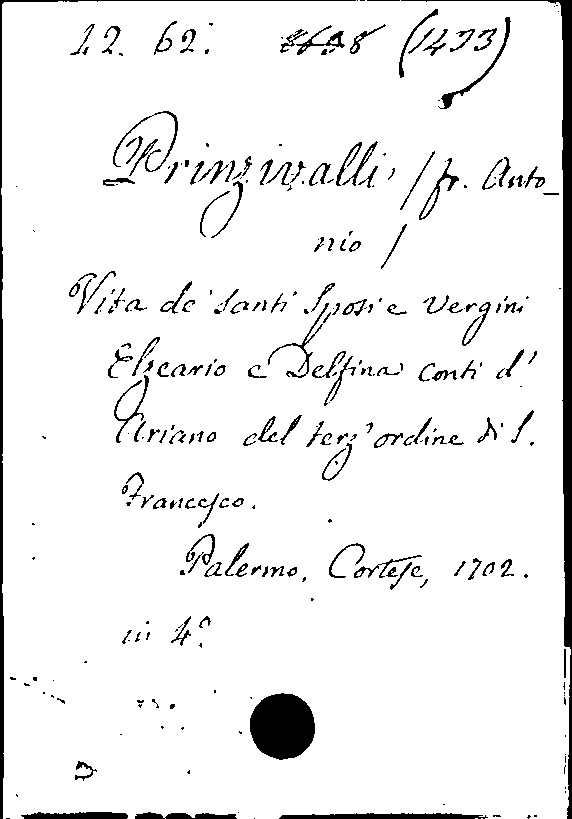 12. 62. (1433)
Prinzivalli, / fr. Anto-
nio /
Vita de' Santi Sposi e Vergini
Elzeario e Delfina conti d'
Ariano del terz'ordine di S.
Francesco.
Palermo, Cortese, 1702.
in 4.º